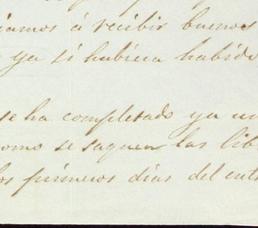 amos á recibir buenos
ya si hubiera habido
se ha completado ya un
como se saquen las lib
los primeros dias del ent